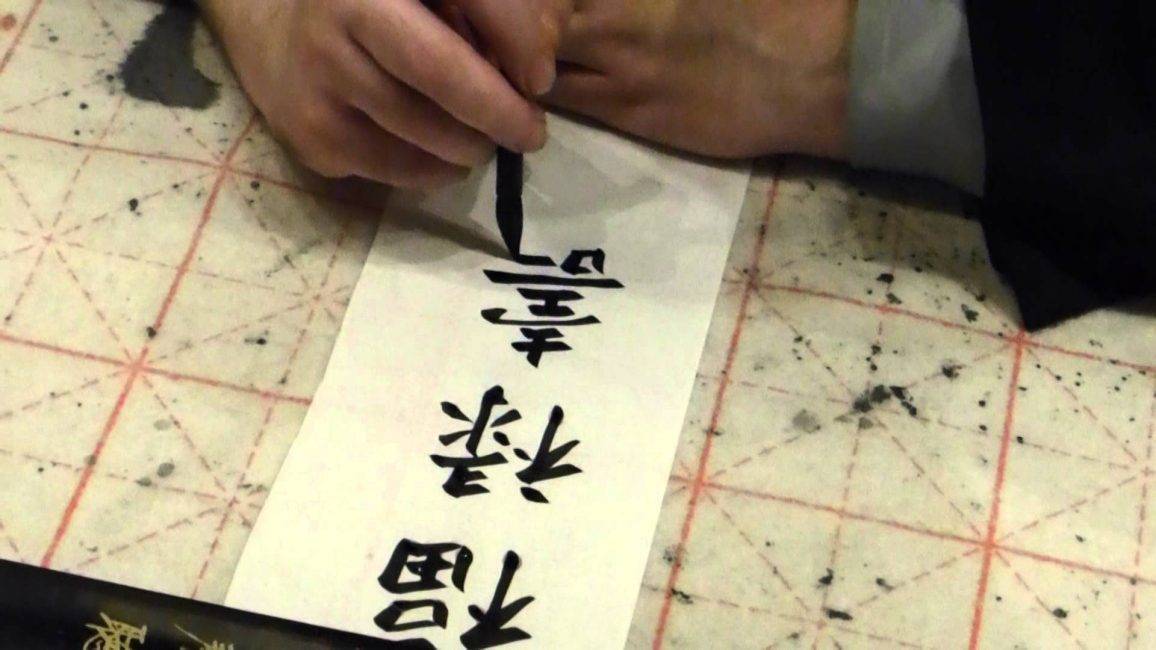 福祿壽